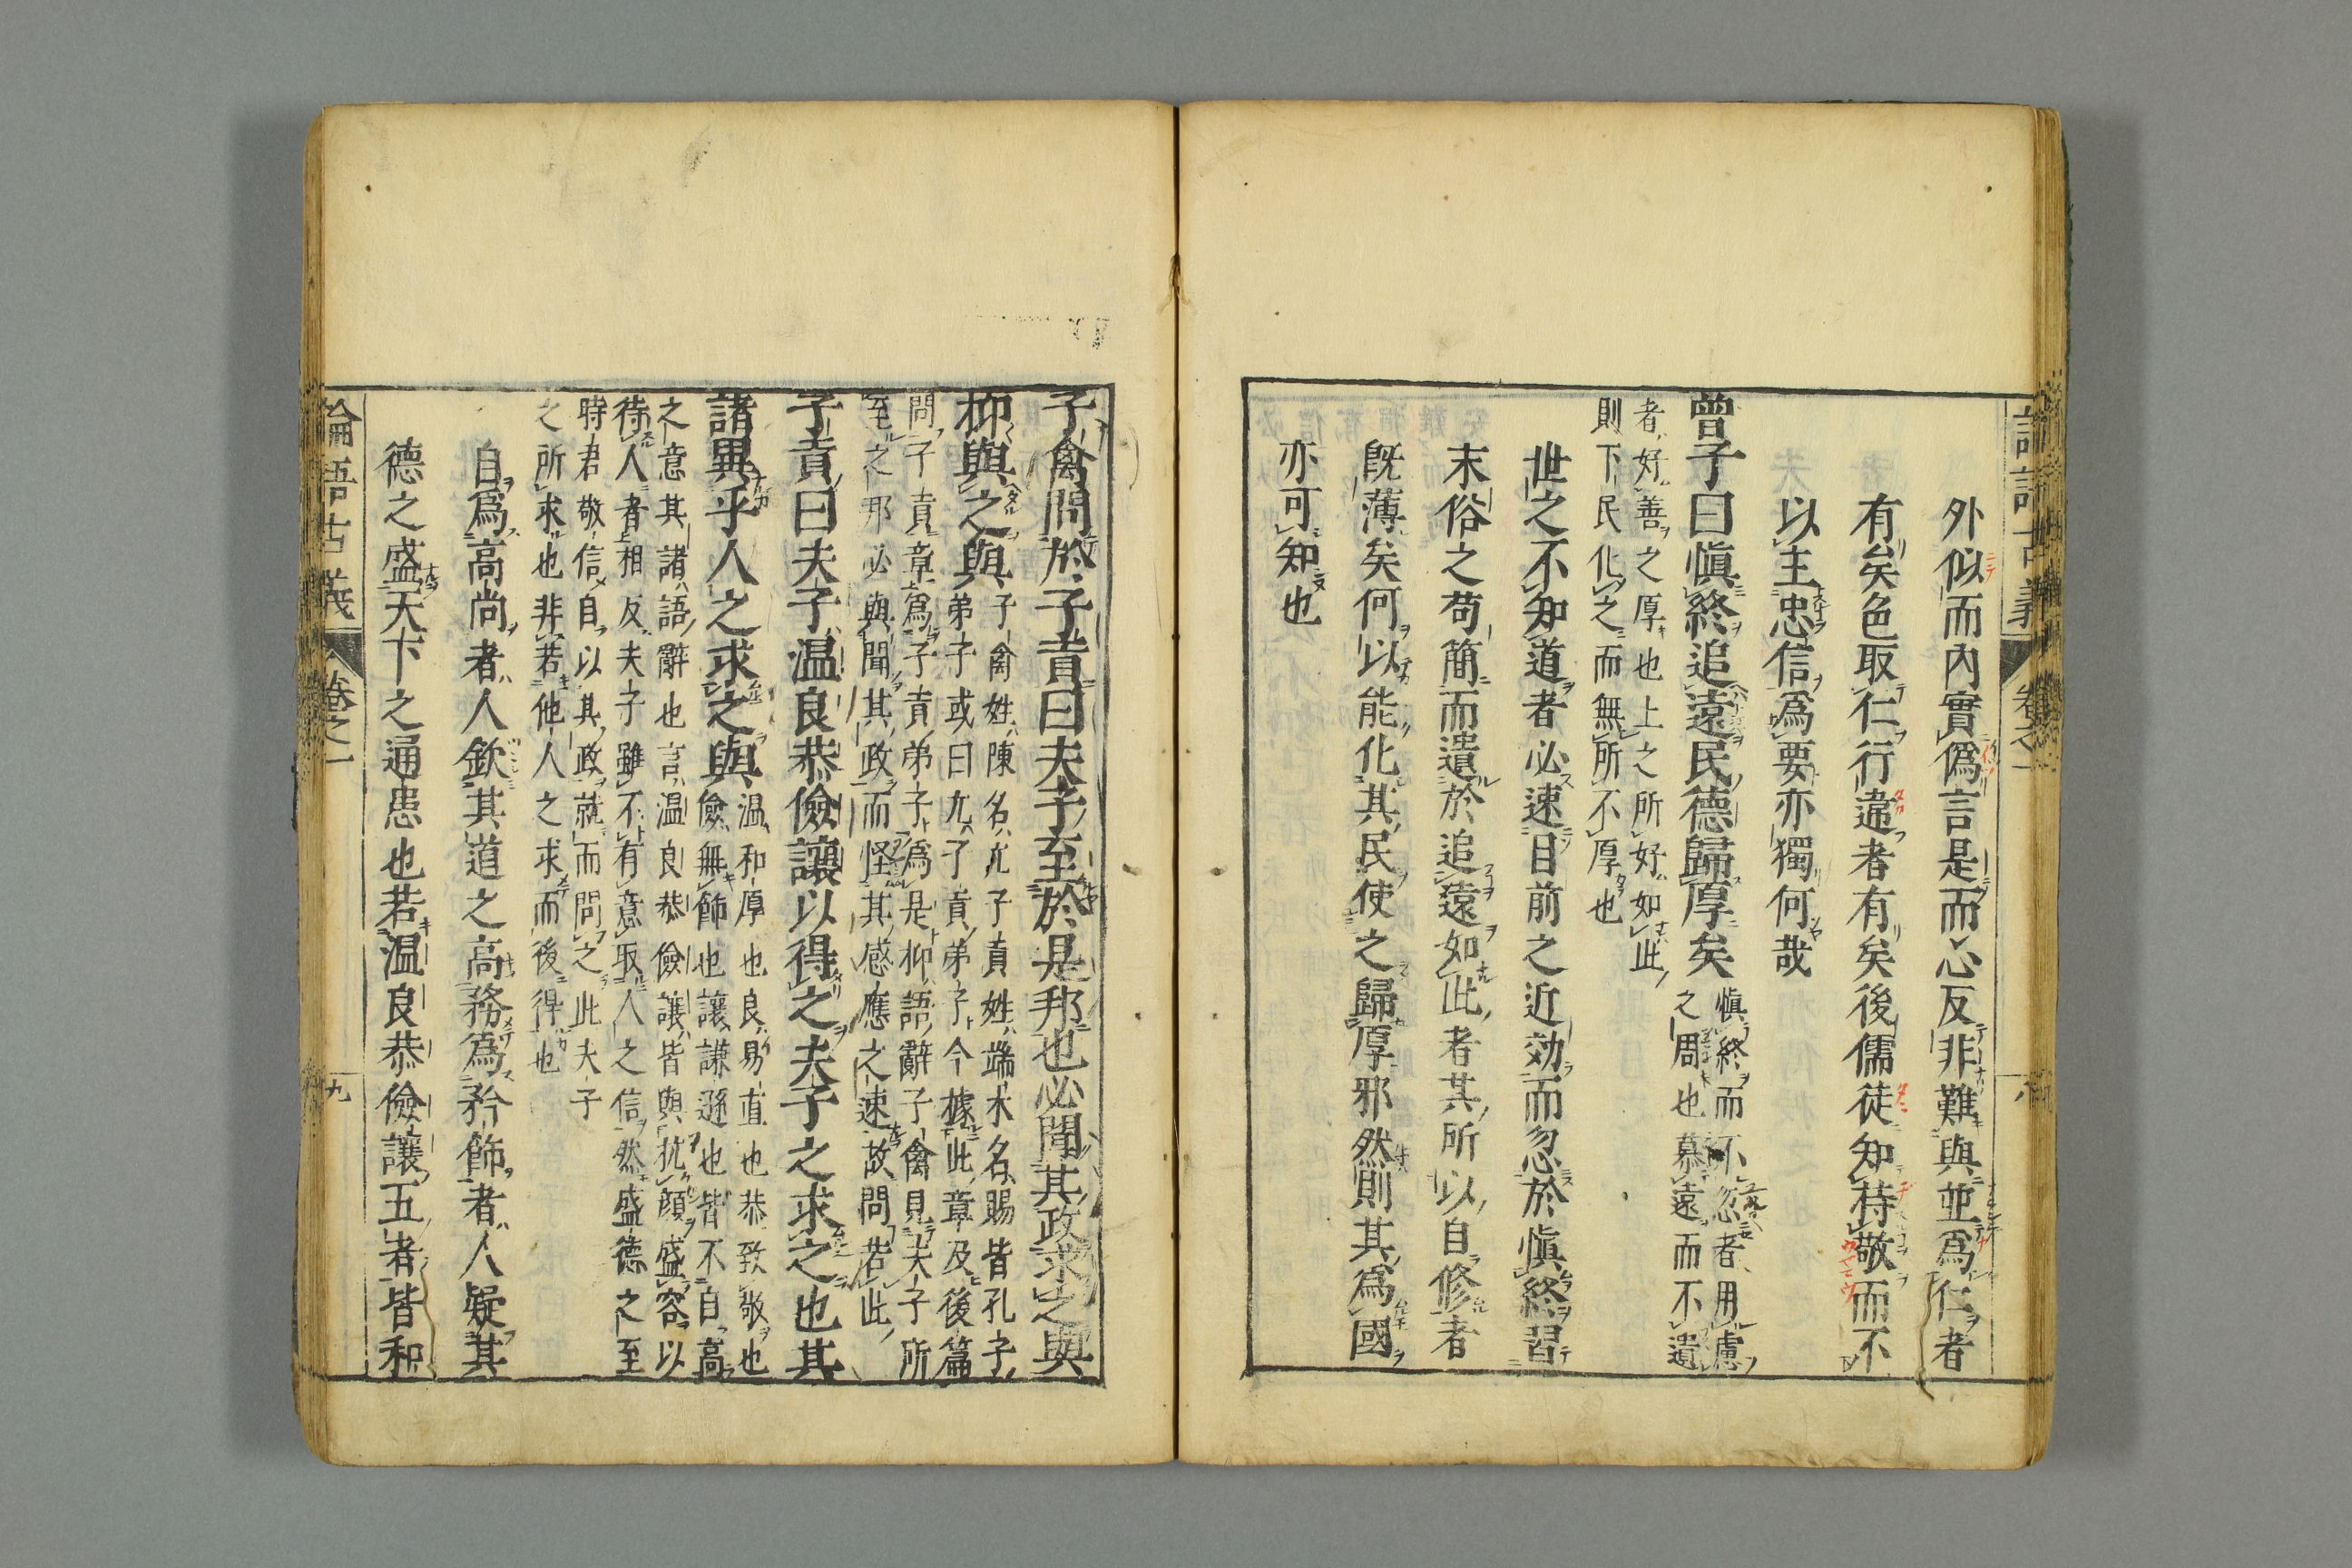 外似而內實僞言是而心反非難與並爲仁者
有矣色取仁行違者有矣後儒徒知持敬而不
以主忠信爲要亦獨何哉
曾子曰愼終追遠民德歸厚矣
愼終而不忽者用慮
之周也慕遠而不遺
者好善之厚也上之所好如此
則下民化之而無所不厚也
世之不知道者必速目前之近効而忽於愼終習
末俗之苟簡而遺於追遠如此者其所以自修者
旣薄矣何以能化其民使之歸厚邪然則其爲國
亦可知也
論語古義
卷之一
九
子禽問於子貢曰夫子至於是邦也必聞其政求之與
抑與之與
子禽姓陳名亢子貢姓端木名賜皆孔子
弟子或曰亢子貢弟子今據此章及後篇
問子貢章爲子貢弟子爲是抑語辭子禽見夫子所
至之邦必與聞其政而怪其感應之速故問若此
子貢曰夫子温良恭儉讓以得之夫子之求之也其
諸異乎人之求之與
温和厚也良易直也恭致敬也
儉無飾也讓謙遜也皆不自高
之意其諸語辭也言温良恭儉讓皆與抗顔盛容以
待人者相反夫子雖不有意取人之信然盛德之至
時君敬信自以其政就而問之此夫子
之所求也非若他人之求而後得也
自爲高尚者人欽其道之高務爲矜飾者人疑其
德之盛天下之通患也若温良恭儉讓五者皆和